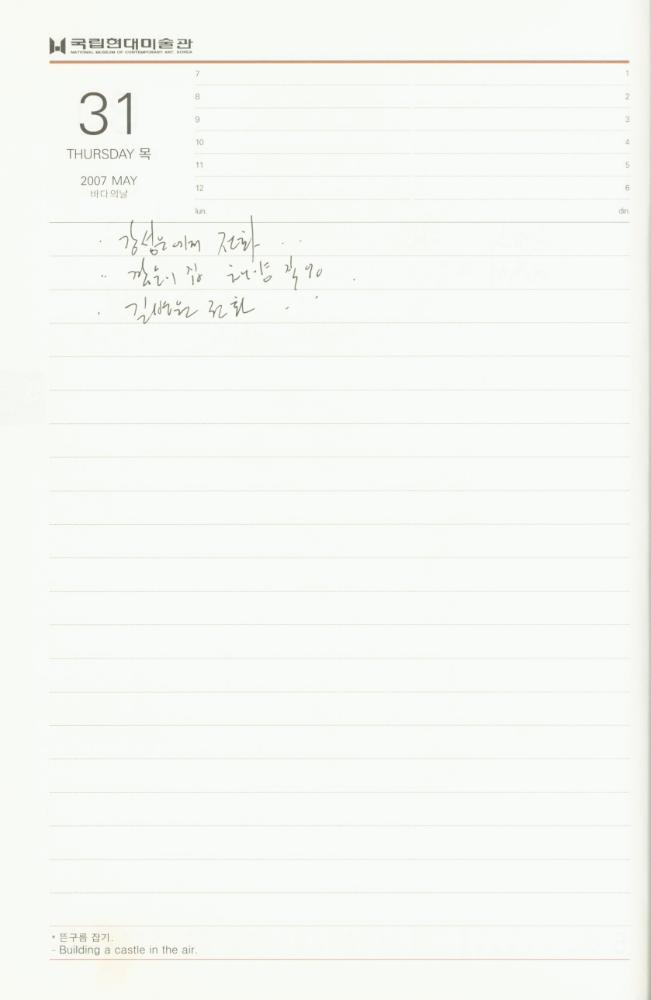 국립현대미술관
NATIONAL MUSEUM OF CONTEMPORARY ART, KOREA
31
THURSDAY 목
2007 MAY
바다의날
7 1
8 2
9 3
10 4
11 5
12 6
lun. din.
· 강성은에게 전화
집
전화
* 뜬구름 잡기.
- Building a castle in the air.